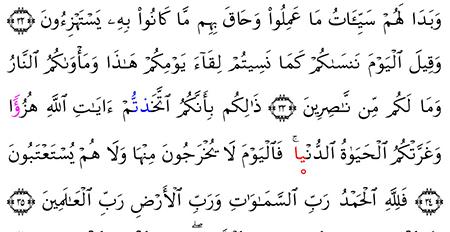 وَبَدَا لَهُمْ سَيِّـَٔاتُ مَا عَمِلُوا۟ وَحَاقَ بِهِم مَّا كَانُوا۟ بِهِۦ يَسْتَهْزِءُونَ ٣٣
وَقِيلَ ٱلْيَوْمَ نَنسَىٰكُمْ كَمَا نَسِيتُمْ لِقَآءَ يَوْمِكُمْ هَـٰذَا وَمَأْوَىٰكُمُ ٱلنَّارُ
وَمَا لَكُم مِّن نَّـٰصِرِينَ ٣٤ ذَٰلِكُم بِأَنَّكُمُ ٱتَّخَذتُّمْ ءَايَـٰتِ ٱللَّهِ هُزُؤًا
وَغَرَّتْكُمُ ٱلْحَيَوٰةُ ٱلدُّنْيَا ۚ فَٱلْيَوْمَ لَا يُخْرَجُونَ مِنْهَا وَلَا هُمْ يُسْتَعْتَبُونَ
٣٤ فَلِلَّهِ ٱلْحَمْدُ رَبِّ ٱلسَّمَـٰوَٰتِ وَرَبِّ ٱلْأَرْضِ رَبِّ ٱلْعَـٰلَمِينَ ٣٥